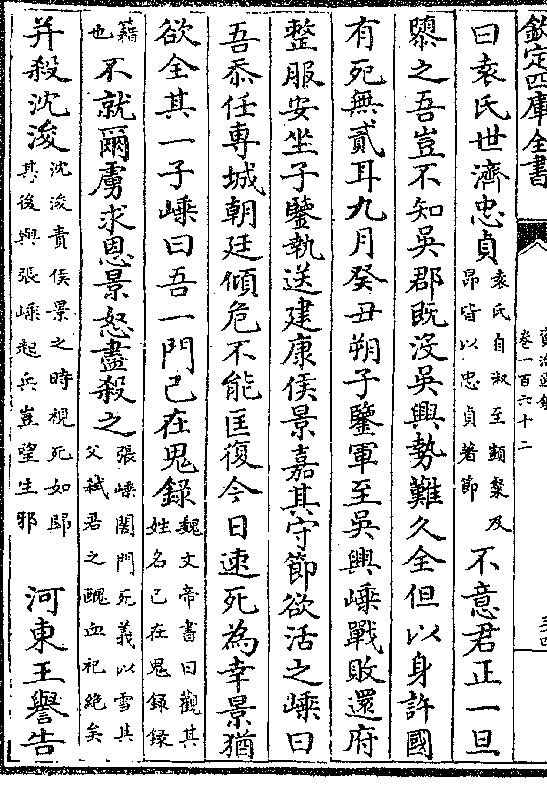 欽定四庫全書
資治通鑑
卷一百六十二
曰袁氏世濟忠貞袁氏自淑至顗粲及昂皆以忠貞著節不意君正一旦
隳之吾豈不知吳郡既沒吳興勢難久全但以身許國
有死無貳耳九月癸丑朔子鑒軍至吳興嵊戰敗還府
整服安坐子鑒執送建康侯景嘉其守節欲活之嵊曰
吾忝任專城朝廷傾危不能匡復今日速死為幸景猶
欲全其一子嵊曰吾一門已在鬼錄魏文帝書曰觀其姓名已在鬼錄錄
籍也不就爾虜求恩景怒盡殺之張嵊闔門死義以雪其父弑君之醜血祀絶矣
并殺沈浚沈浚責侯景之時視死如歸其後與張嵊起兵豈望生邪河東王譽告